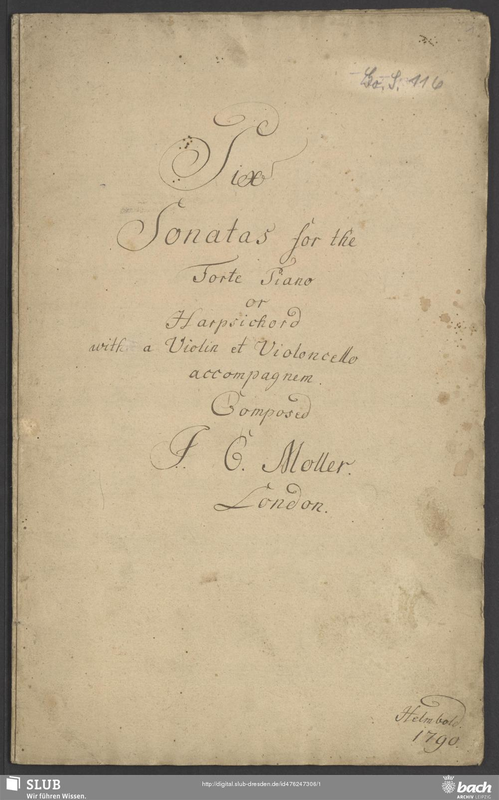 Go. S. 116
Six
Sonatas for the
Forte Piano
or
Harpsichord
with a Violin et Violoncello
accompagnem.
Composed
J. C. Moller.
London.
Helmbold.
1790.
SLUB
Wir führen Wissen.
http://digital.slub-dresden.de/id476247306/1
bach
ARCHIV LEIPZIG